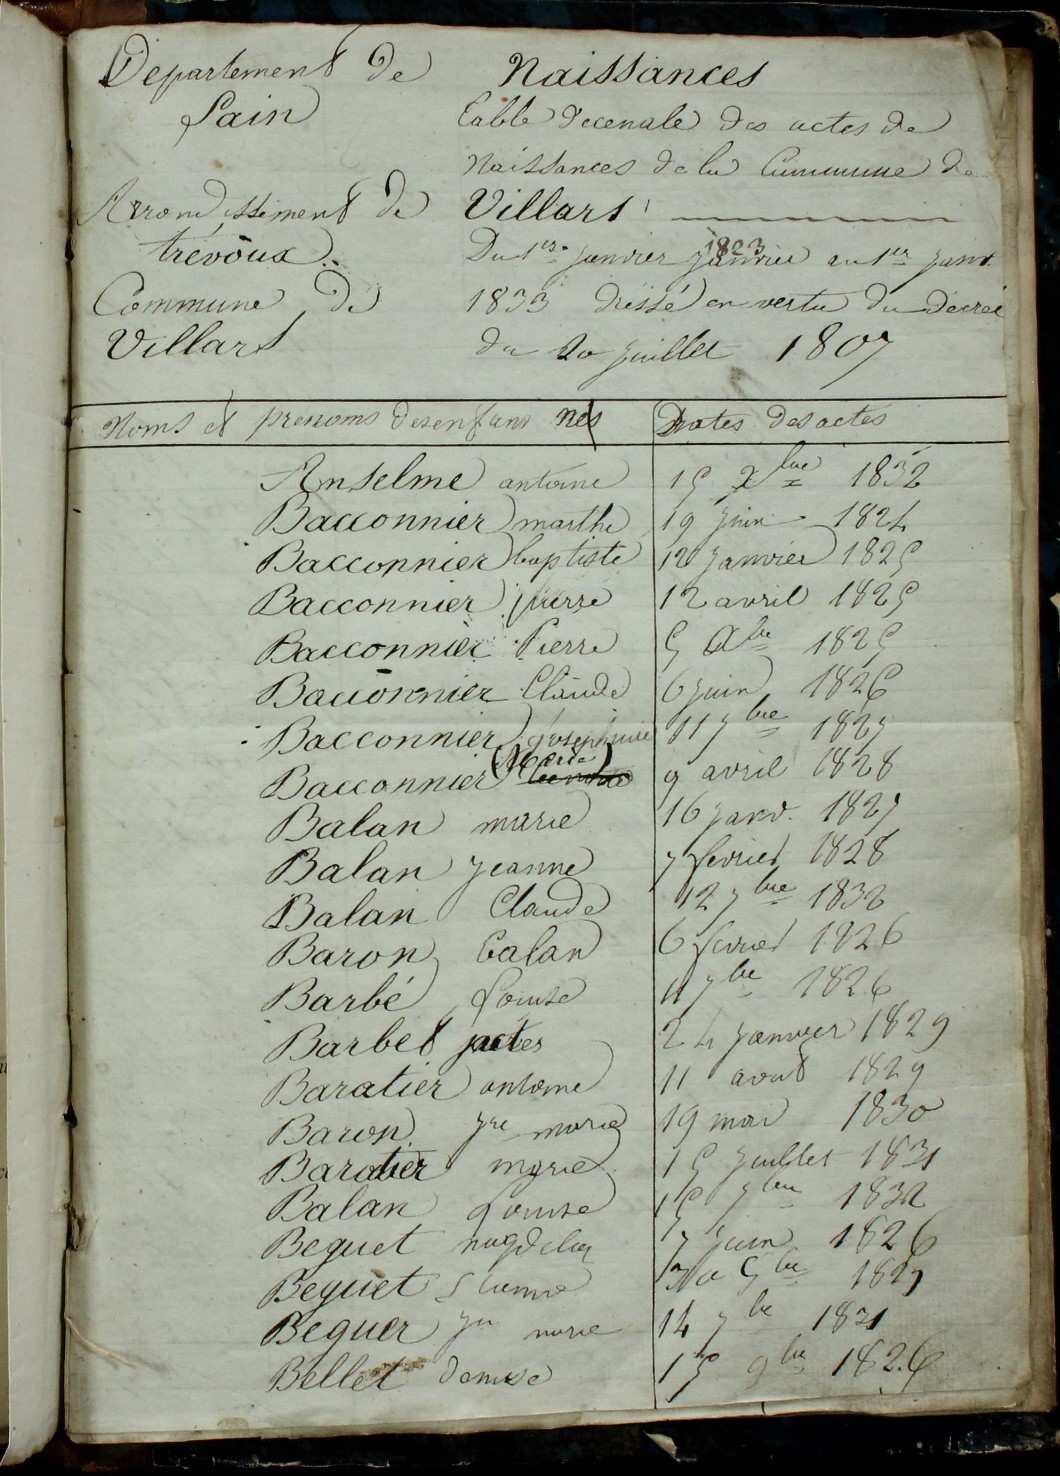 Departement de
Lain
Arrondissement de
trévoux.
Commune de
Villars
Naissances
Table decenale des actes de
Naissances de la Commune de
Villars
Du 1er Janvier 1823 au 1er Janv
1833 dréssé en vertu du décret
du 20 Juillet 1807
Noms et prenoms des enfans nés Dates des actes
Anselme antoine 15 xbre 1832
Bacconnier marthe 19 Juin 1824
Bacconnier baptiste 12 Janvier 1825
Bacconnier pierre 12 avril 1825
Bacconnier Pierre 5 bre 1825
Bacconnier Claude 6 Juin 1826
Bacconnier Josephine 11 7bre 1827
Bacconnier (Marie) 9 avril 1828
Balan marie 16 Janv. 1827
Balan Jeanne 7 fevrier 1828
Balan Claude 12 7bre 1832
Baron 6 fevrier 1826
Barbé Louise 11 7bre 1826
Barbet 24 Janvier 1829
Baratier antoine 11 aout 1829
Baron Jne marie 19 mai 1830
Baratier marie 15 Juillet 1831
Balan Louise 15 7bre 1832
Beguet 7 Juin 1826
Beguet bre 1827
Beguet Jn marie 14 7bre 1831
Bellet denise 15 9bre 1826